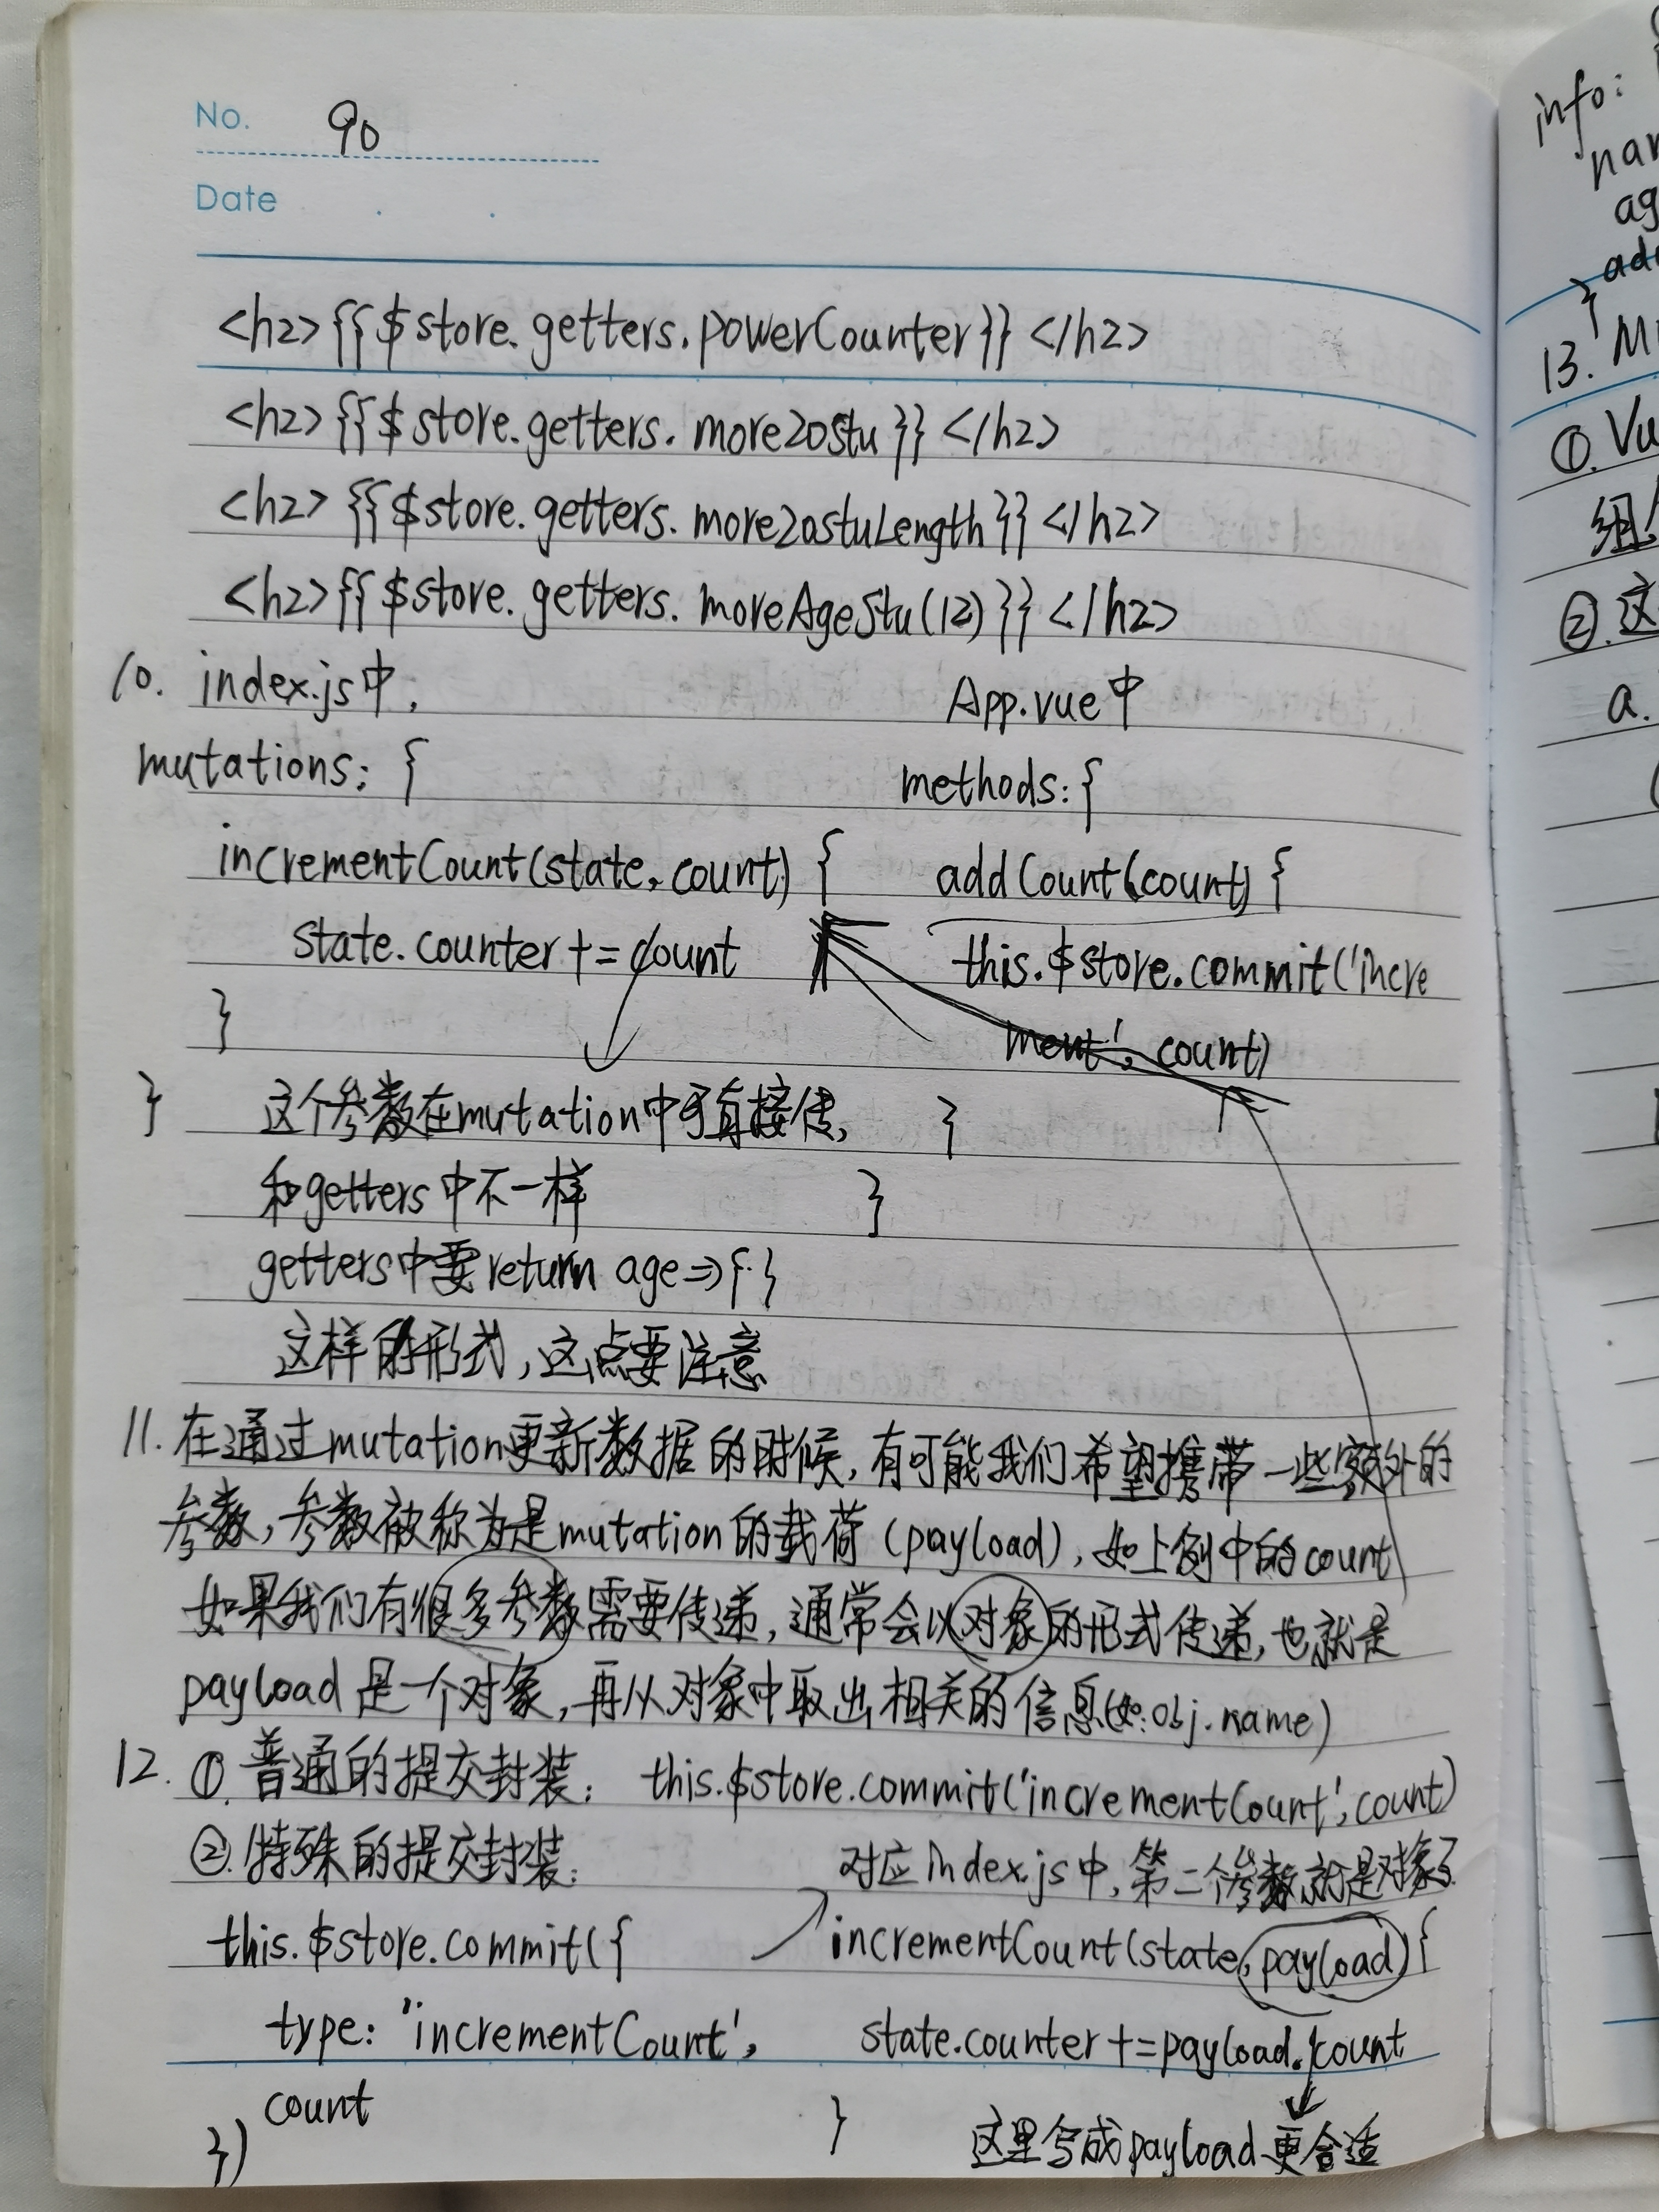 No. 90
Date
<h2>{{$store.getters.powerCounter}}</h2>
<h2>{{$store.getters.more20stu}}</h2>
<h2>{{$store.getters.more20stuLength}}</h2>
<h2>{{$store.getters.moreAgeStu(12)}}</h2>
10. index.js中,
mutations: {
incrementCount(state, count) {
state.counter += count
}
}
这个参数在mutation中可直接传,
和getters中不一样
getters中要return age=>{}
这样的形式,这点要注意
App.vue中
methods: {
addCount(count) {
this.$store.commit('incre
ment', count)
}
}
11. 在通过mutation更新数据的时候,有可能我们希望携带一些额外的
参数,参数被称为是mutation的载荷(payload),如上例中的count
如果我们有很多参数需要传递,通常会以对象的形式传递,也就是
payload是一个对象,再从对象中取出相关的信息(如:obj.name)
12. ①.普通的提交封装: this.$store.commit('incrementCount',count)
②.特殊的提交封装:
this.$store.commit({
type: 'incrementCount',
count
})
对应index.js中,第二个参数就是对象了
incrementCount(state,payload){
state.counter+=payload.count
}
这里写成payload更合适
info:
13.
①.Vu
②.这
a.